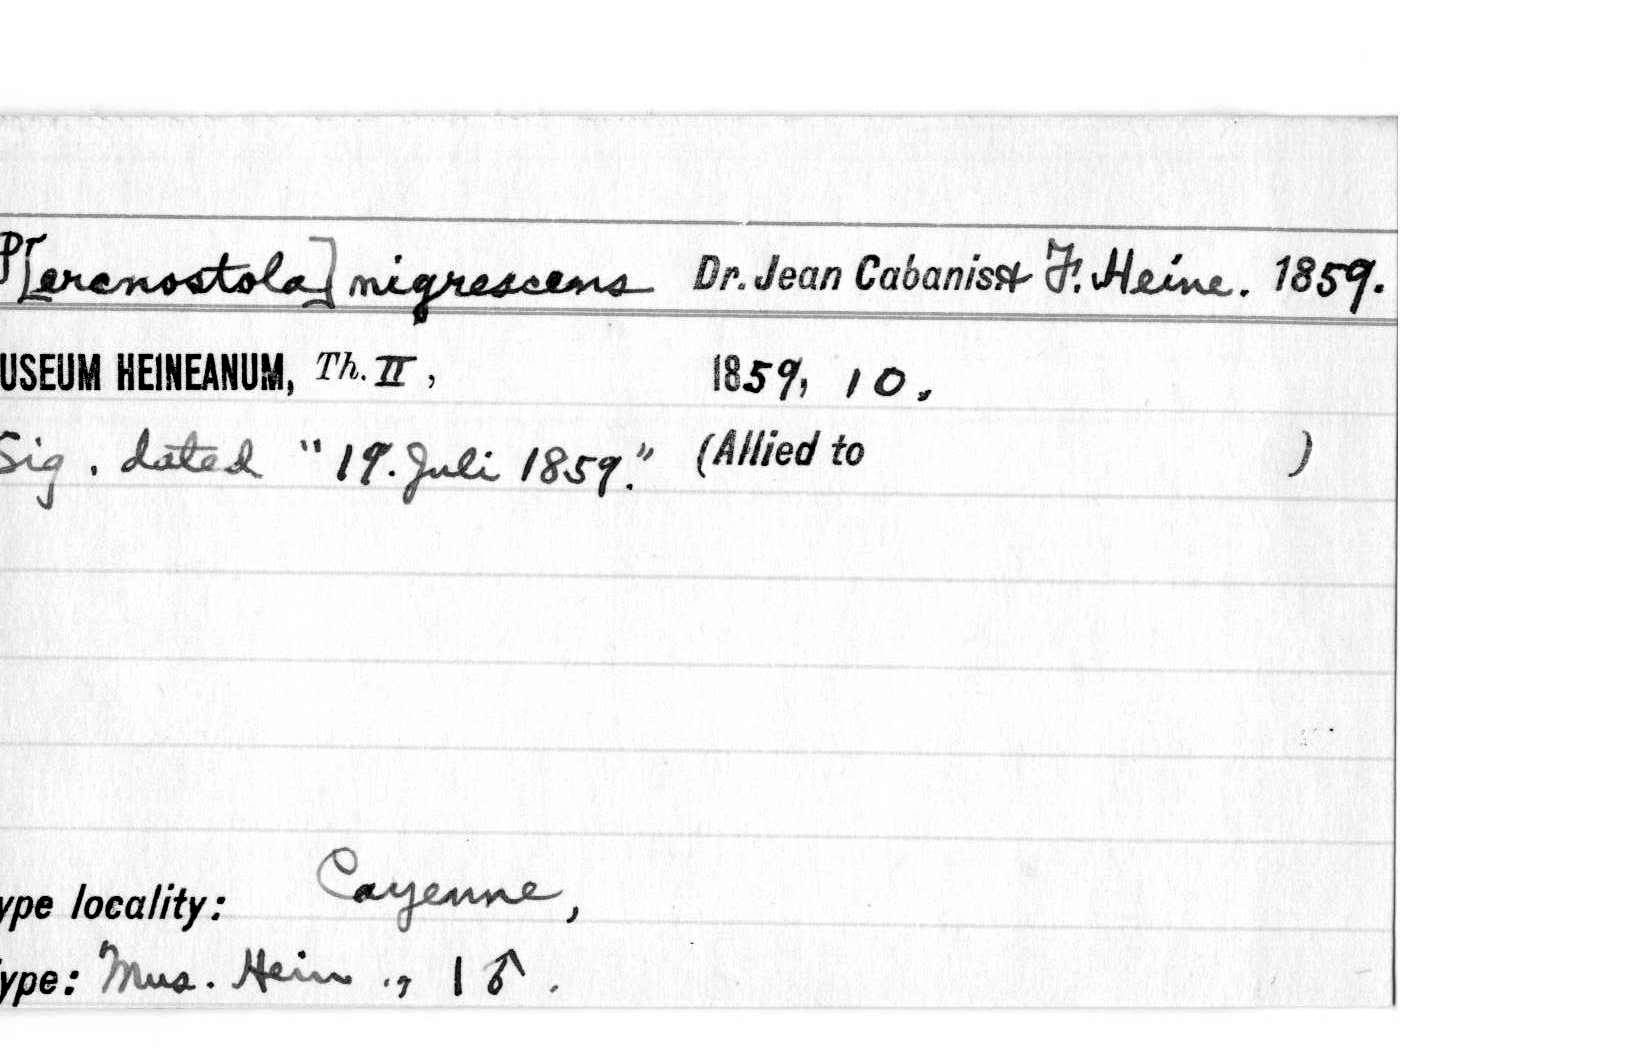 P[ercnostola] nigrescens Dr. Jean Cabanis & F. Heine. 1859.
USEUM HEINEANUM, Th. II, 1859, 10.
Sig. dated "19. Juli 1859." (Allied to )
ype locality: Cayenne,
ype: Mus. Hein., 1 ♂.